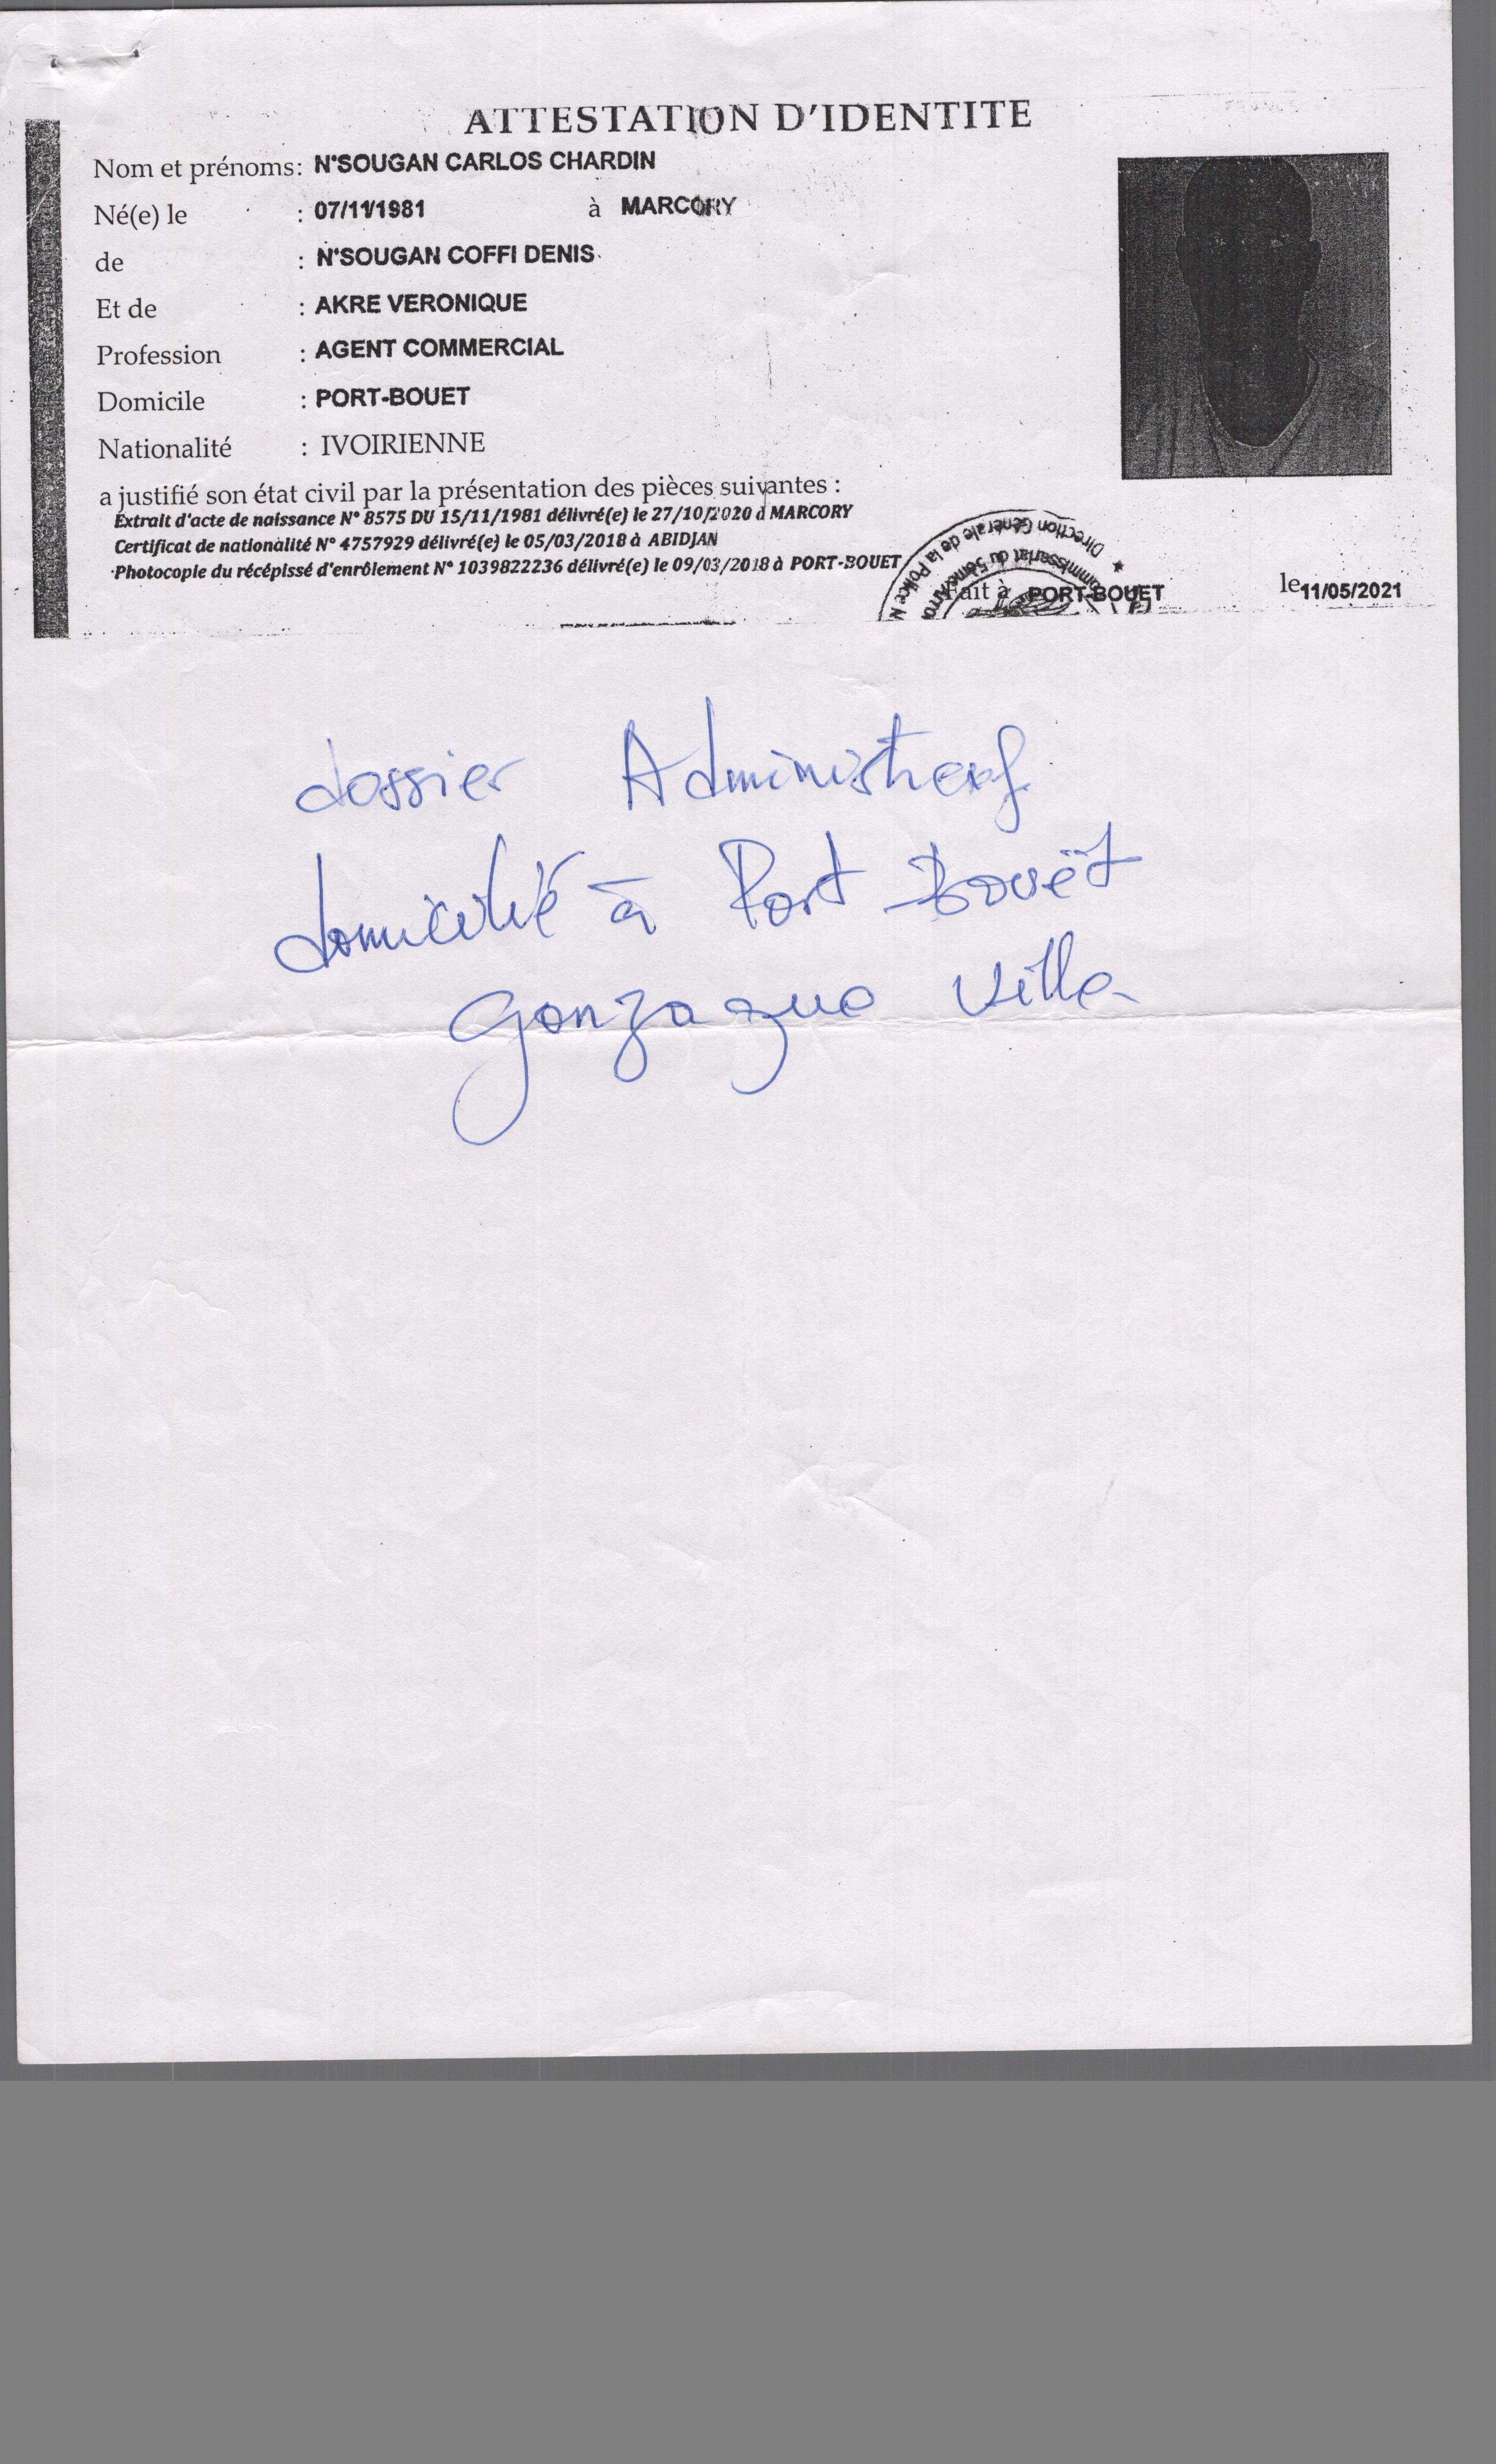 ATTESTATION D'IDENTITE
Nom et prénoms: N'SOUGAN CARLOS CHARDIN
Né(e) le : 07/11/1981 à MARCORY
de : N'SOUGAN COFFI DENIS
Et de : AKRE VERONIQUE
Profession : AGENT COMMERCIAL
Domicile : PORT-BOUET
Nationalité : IVOIRIENNE
a justifié son état civil par la présentation des pièces suivantes :
Extrait d'acte de naissance N° 8575 DU 15/11/1981 délivré(e) le 27/10/2020 à MARCORY
Certificat de nationalité N° 4757929 délivré(e) le 05/03/2018 à ABIDJAN
Photocopie du récépissé d'enrôlement N° 1039822236 délivré(e) le 09/03/2018 à PORT-BOUET
Direction Générale de la Police N
Commissariat du 5ème Arro
Fait à PORT-BOUET le 11/05/2021
dossier Administratif
domicilié à Port Bouët
Gonzague ville